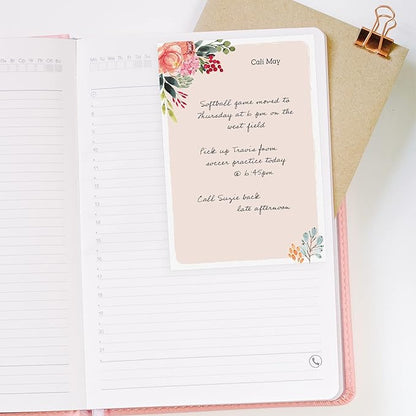 Cali May
Softball game moved to
Thursday at 6 pm on the
west field
Pick up Travis from
soccer practice today
@ 6:45pm
Call Suzie back
late afternoon